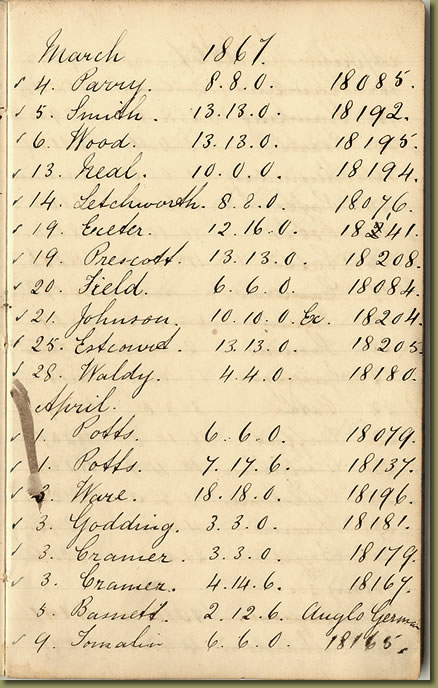 March 1867.
s 4. Parry. 8.8.0. 18085.
s 5. Smith. 13.13.0. 18192.
s 6. Wood. 13.13.0. 18195.
s 13. Neal. 10.0.0. 18194.
s 14. Letchworth. 8.8.0. 18076.
s 19. Exeter. 12.16.0.
s 19. Prescott. 13.13.0. 18208.
s 20. Field. 6.6.0. 18084.
s 21. Johnson. 10.10.0 Ex. 18204.
s 25. 13.13.0. 18205
s 28. Waldy. 4.4.0. 18180.
April.
s 1. Potts. 6.6.0. 18079.
s 1. Potts. 7.17.6. 18137.
s 3. Ware. 18.18.0. 18196.
s 3. Godding. 3.3.0. 18181.
s 3. Cramer. 3.3.0. 18179.
s 3. Cramer. 4.14.6. 18167.
5. Basnett. 2.12.6. Anglo German
s 9. Tomalin 6.6.0. 18165.